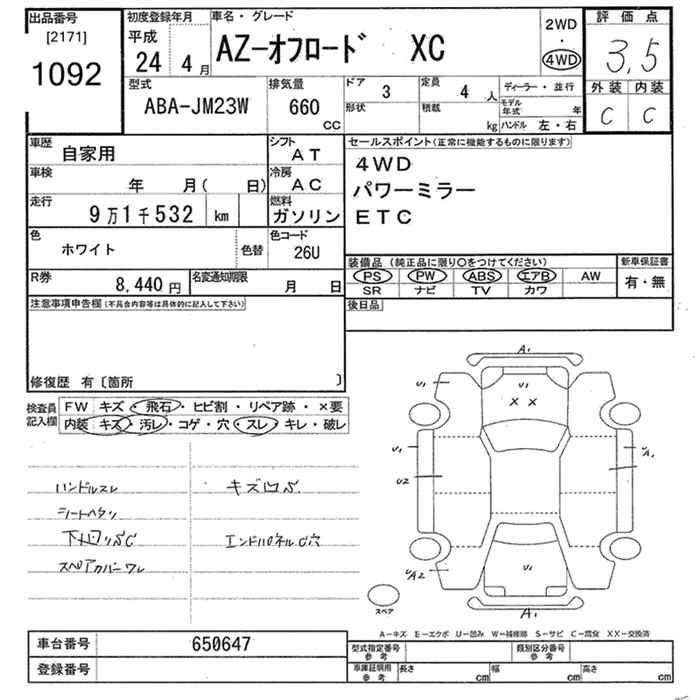 出品番号
[2171]
1092
初度登録年月
平成
24 4 月
車名・グレード
AZ-オフロード XC
2WD
・
4WD
評価点
3.5
外装 内装
C C
型式
ABA-JM23W
排気量
660
CC
ドア
3
定員
4 人
形状
積載
kg
ディーラー・並行
モデル年式
年
ハンドル 左・右
車歴
自家用
シフト
AT
車検
年 月( 日)
冷房
AC
走行
9万1千532 km
燃料
ガソリン
色
ホワイト
色替
色コード
26U
R券
8,440 円
名変通知期限
月 日
セールスポイント(正常に機能するものに限ります)
4WD
パワーミラー
ETC
装備品(純正品に限り○をつけてください)
PS PW ABS エアB AW
SR ナビ TV カワ
新車保証書
有・無
後日品
注意事項申告欄(不具合内容等は具体的に記入して下さい)
修復歴 有〔箇所 〕
検査員
記入欄
FW キズ・飛石・ヒビ割・リペア跡・×要
内装 キズ・汚レ・コゲ・穴・スレ・キレ・破レ
ハンドルスレ
シートヘタリ
スペアカバーワレ
キズ凹
エンドパネルC穴
A1
U1
U1
X X
U1
U2
A1
U1
A2
A1
スペア
A-キズ E-エクボ U-凹み W-補修跡 S-サビ C-腐食 XX-交換済
車台番号
650647
登録番号
型式指定番号
参考
類別区分番号
参考
車庫証明用
参考
長さ cm
幅 cm
高さ cm